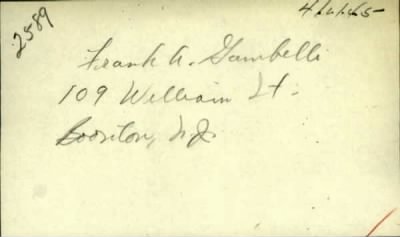 2589
Frank A. Gambelli
109 William St.
Boonton, NJ